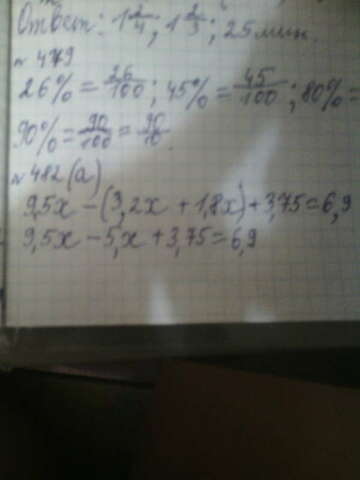 Ответ: 1 2/4; 1 2/3; 25 мин.
№ 479
26% = 26/100; 45% = 45/100; 80% =
90% = 90/100 = 90/10.
№ 482 (а)
9,5x - (3,2x + 1,8x) + 3,75 = 6,9
9,5x - 5,x + 3,75 = 6,9